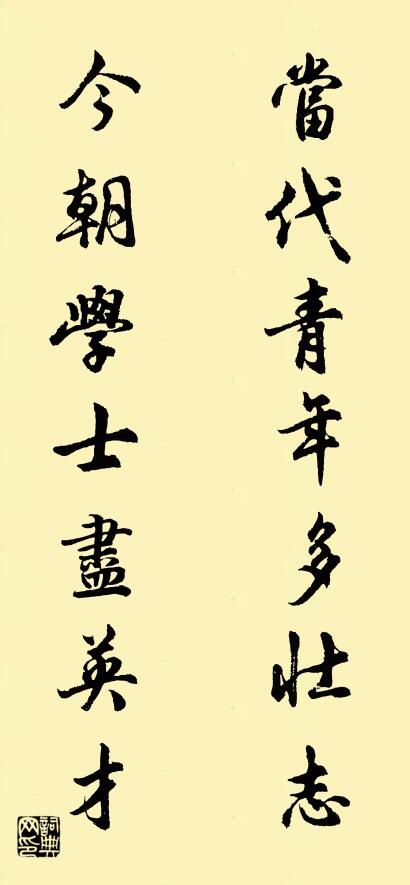 當代青年多壯志
今朝學士盡英才
詞典網印